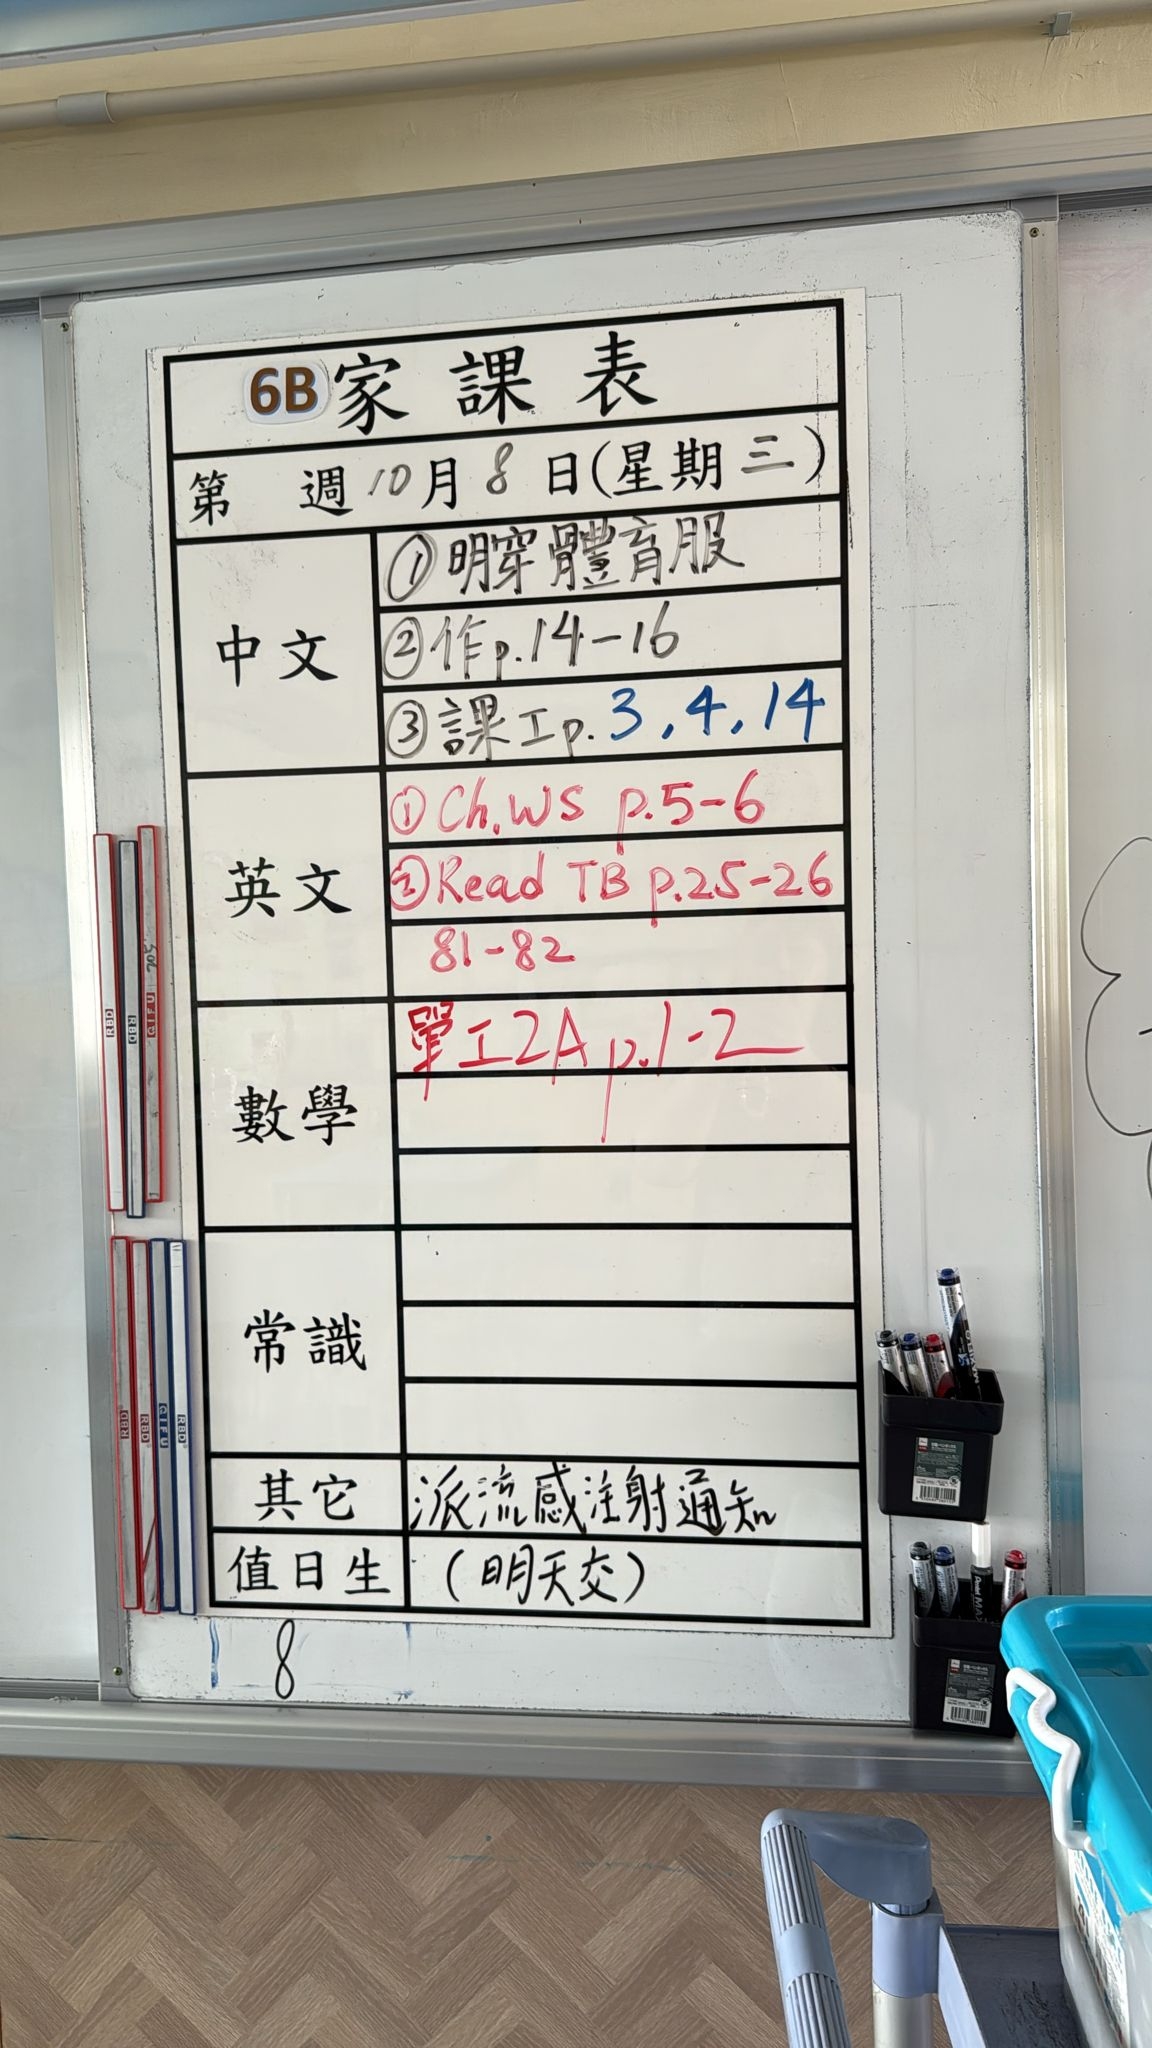 6B 家課表
第 週 10月8日(星期三)
中文
①明穿體育服
②作p.14-16
③課工p. 3, 4, 14
英文
①Ch.WS p.5-6
②Read TB p.25-26
81-82
數學
單工2A p.1-2
常識
其它
派流感注射通知
值日生
(明天交)
8
RBD
RBD
QIFU 705
RBD
RBD
QIFU
RBD